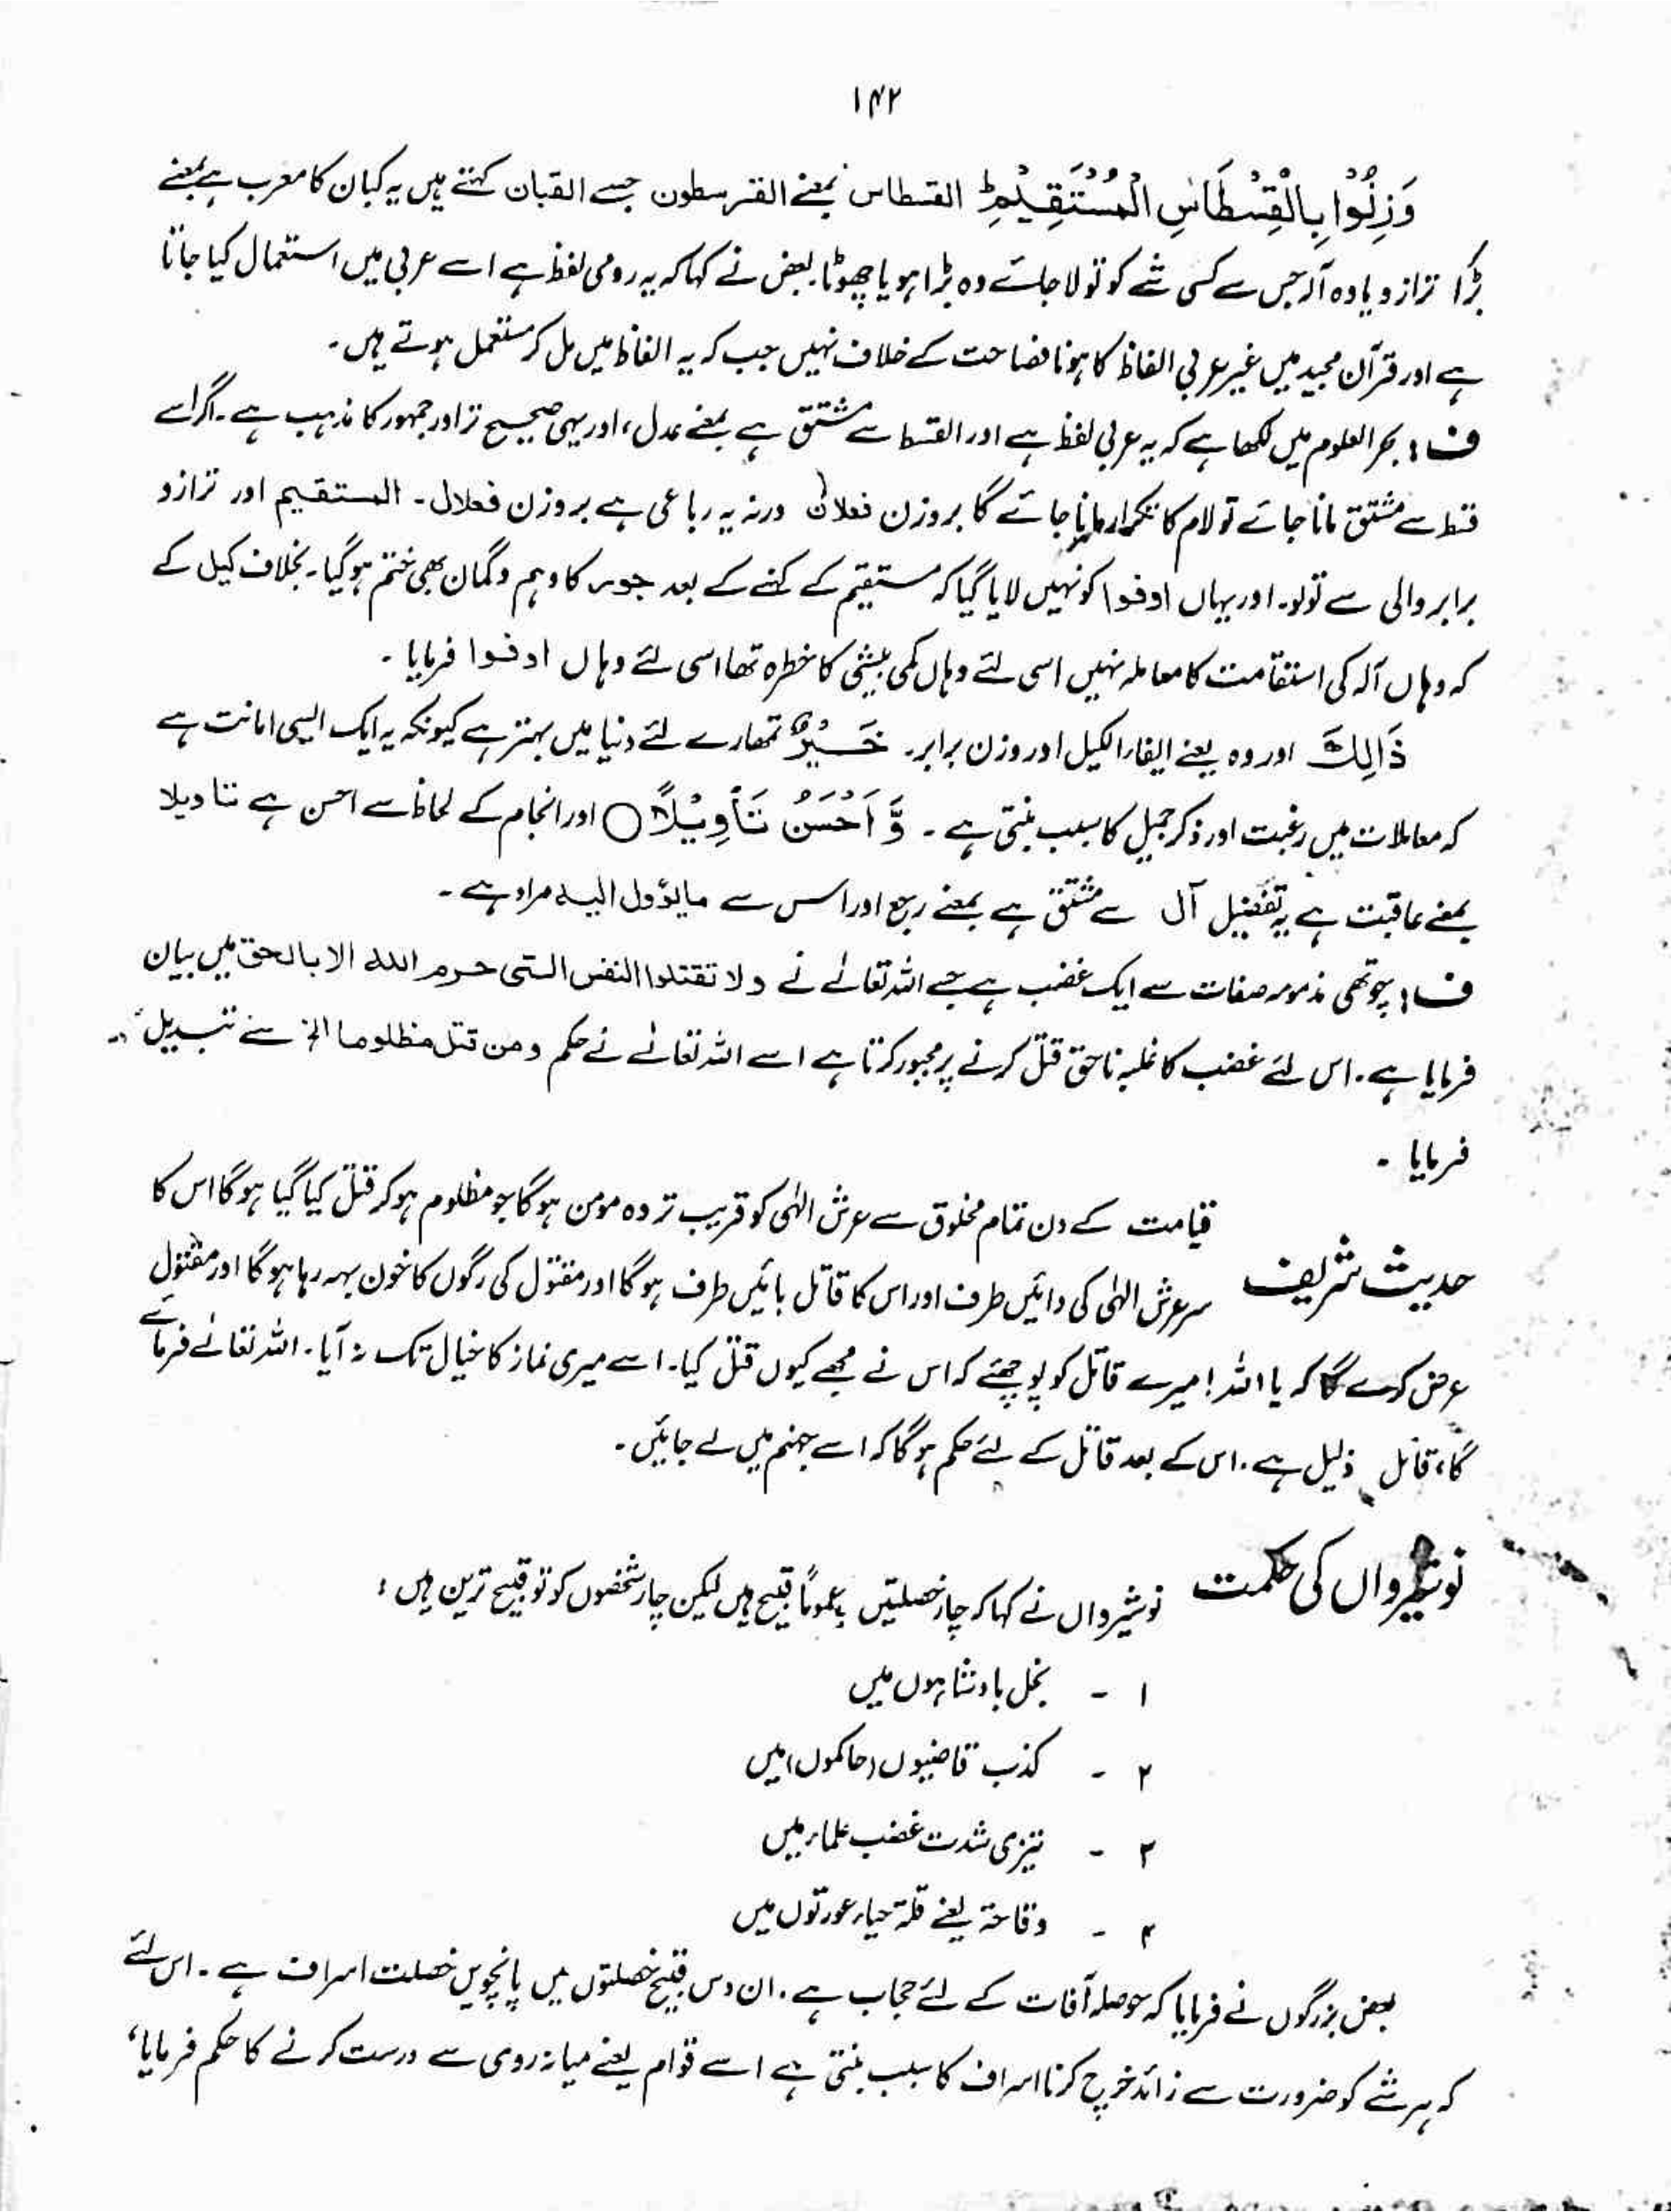 ۱۴۲
وَزِنُوْا بِالْقِسْطَاسِ الْمُسْتَقِيْمِؕ القسطاس بمعنے القرسطون جسے القبان کہتے ہیں یہ کپان کا معرب ہے بمعنے
بڑا ترازو یا وہ آلہ جس سے کسی شے کو تولا جائے وہ بڑا ہو یا چھوٹا۔ بعض نے کہا کہ یہ رومی لفظ ہے اسے عربی میں استعمال کیا جاتا
ہے اور قرآن مجید میں غیر عربی الفاظ کا ہونا فصاحت کے خلاف نہیں جب کہ یہ الفاظ میں مل کر مستعمل ہوتے ہیں۔
ف: بحر العلوم میں لکھا ہے کہ یہ عربی لفظ ہے اور القسط سے مشتق ہے بمعنے عدل، اور یہی صحیح تر اور جمہور کا مذہب ہے۔ اگر اسے
قسط سے مشتق مانا جائے تو لام کا تکرار مانا جائے گا بروزن فعلاں ورنہ یہ رباعی ہے بروزن فعلال۔ المستقیم اور ترازو
برابر والی سے تولو۔ اور یہاں اوفوا کو نہیں لایا گیا کہ مستقیم کے کہنے کے بعد جور کا وہم و گمان بھی ختم ہو گیا۔ بخلاف کیل کے
کہ وہاں آلہ کی استقامت کا معاملہ نہیں اسی لئے وہاں کمی بیشی کا خطرہ تھا اسی لئے وہاں اوفوا فرمایا۔
ذَالِكَ اور وہ یعنے ایفاء الکیل اور وزن برابر۔ خَيْرٌ تمھارے لئے دنیا میں بہتر ہے کیونکہ یہ ایک ایسی امانت ہے
کہ معاملات میں رغبت اور ذکر جمیل کا سبب بنتی ہے۔ وَّ اَحْسَنُ تَأْوِيْلًا ○ اور انجام کے لحاظ سے احسن ہے تاویلا
بمعنے عاقبت ہے یہ تفعیل آل سے مشتق ہے بمعنے رجع اور اس سے مایؤول الیہ مراد ہے۔
ف: چوتھی مذمومہ صفات سے ایک غضب ہے جسے اللہ تعالےٰ نے ولا تقتلوا النفس التی حرم اللہ الا بالحق میں بیان
فرمایا ہے۔ اس لئے غضب کا غلبہ ناحق قتل کرنے پر مجبور کرتا ہے اسے اللہ تعالےٰ نے حکم ومن قتل مظلوما الخ سے تبدیل
فرمایا۔
حدیث شریف قیامت کے دن تمام مخلوق سے عرش الٰہی کو قریب تر وہ مومن ہوگا جو مظلوم ہو کر قتل کیا گیا ہوگا اس کا
سر عرش الٰہی کی دائیں طرف اور اس کا قاتل بائیں طرف ہوگا اور مقتول کی رگوں کا خون بہہ رہا ہوگا اور مقتول
عرض کرے گا کہ یا اللہ! میرے قاتل کو پوچھئے کہ اس نے مجھے کیوں قتل کیا۔ اسے میری نماز کا خیال تک نہ آیا۔ اللہ تعالےٰ فرمائے
گا، قاتل ذلیل ہے۔ اس کے بعد قاتل کے لئے حکم ہوگا کہ اسے جہنم میں لے جائیں۔
نوشیرواں کی حکمت نوشیرواں نے کہا کہ چار خصلتیں عموماً قبیح ہیں لیکن چار شخصوں کو تو قبیح ترین ہیں:
۱ - بخل بادشاہوں میں
۲ - کذب قاضیوں (حاکموں) میں
۳ - تیزی شدت غضب علماء میں
۴ - وقاحۃ یعنے قلۃ حیاء عورتوں میں
بعض بزرگوں نے فرمایا کہ حوصلہ آفات کے لئے حجاب ہے۔ ان دس قبیح خصلتوں میں پانچویں خصلت اسراف ہے۔ اس لئے
کہ ہر شے کو ضرورت سے زائد خرچ کرنا اسراف کا سبب بنتی ہے اسے قوام یعنے میانہ روی سے درست کرنے کا حکم فرمایا،